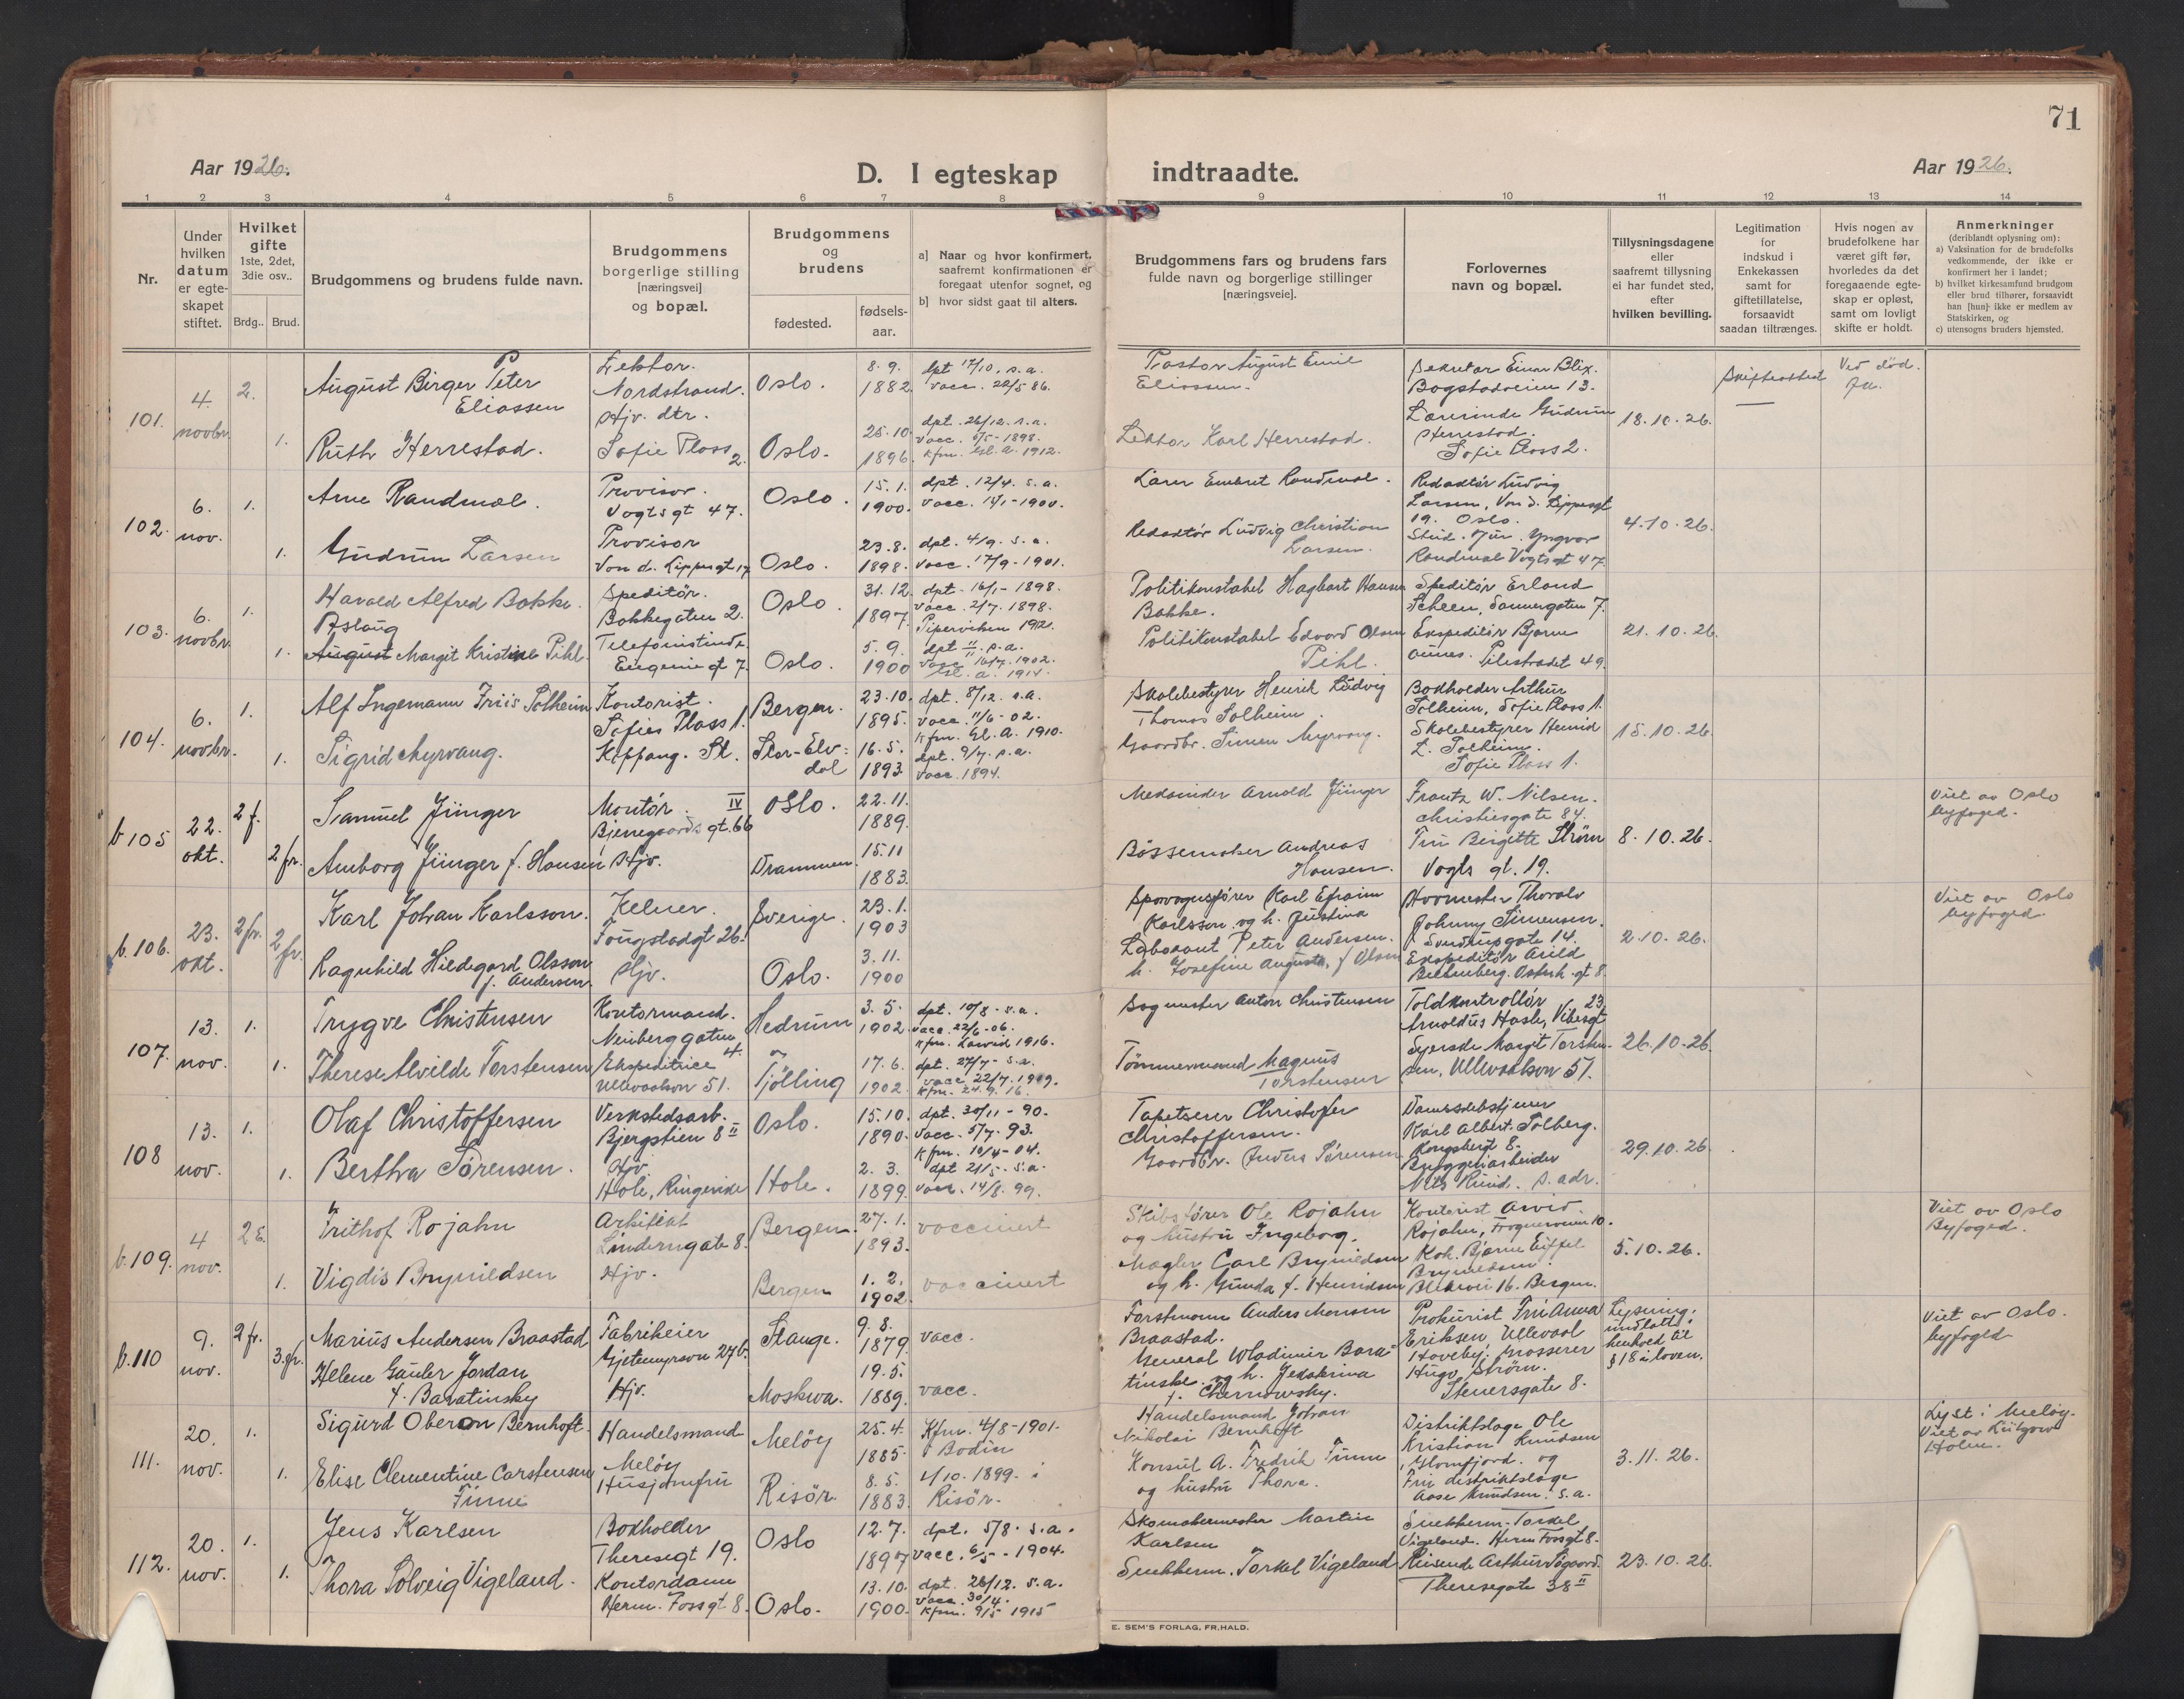 71
Aar 1926.
D. I egteskap indtraadte.
Aar 1926.
1 2 3 4 5 6 7 8 9 10 11 12 13 14
Nr.
Under hvilken datum er egteskapet stiftet.
Hvilket gifte 1ste, 2det, 3die osv..
Brdg.. Brud.
Brudgommens og brudens fulde navn.
Brudgommens borgerlige stilling [næringsvei] og bopæl.
Brudgommens og brudens
fødested.
fødsels-aar.
a] Naar og hvor konfirmert, saafremt konfirmationen er foregaat utenfor sognet, og
b] hvor sidst gaat til alters.
Brudgommens fars og brudens fars fulde navn og borgerlige stillinger [næringsveie].
Forlovernes navn og bopæl.
Tillysningsdagene eller saafremt tillysning ei har fundet sted, efter hvilken bevilling.
Legitimation for indskud i Enkekassen samt for giftetillatelse, forsaavidt saadan tiltrænges.
Hvis nogen av brudefolkene har været gift før, hvorledes da det foregaaende egteskap er opløst, samt om lovligt skifte er holdt.
Anmerkninger (deriblandt oplysning om):
a) Vaksination for de brudefolks vedkommende, der ikke er konfirmert her i landet;
b) hvilket kirkesamfund brudgom eller brud tilhører, forsaavidt han [hun] ikke er medlem av Statskirken, og
c) utensogns bruders hjemsted.
101. 4. novbr. 2. 1.
August Birger Peter Eliassen
Lektor. Nordstrand.
Oslo. 8.9. 1882.
dpt 17/10. s.a.
vacc. 22/5 86.
Pastor August Emil Eliassen.
Sekretær Einar Blix. Bogstadveien 13.
Skifteattest
Ved død. Ja.
Ruth Herrestad.
Hjv. dtr. Sofie Plass 2.
Oslo. 25.10. 1896.
dpt. 26/12. s.a.
vacc. 5/5-1898.
Kfm. Gl. A. 1912.
Lektor Karl Herrestad.
Lærerinde Gudrun Herrestad. Sofie Plass 2.
18.10.26.
102. 6. nov. 1. 1.
Arne Randmæl.
Provisor. Vogtsgt 47.
Oslo. 15.1. 1900.
dpt. 12/4. s.a.
Lærer Embret Randmæl.
Redaktør Ludvig Larsen, Von d. Lippesgt 19. Oslo.
4.10.26.
Gudrun Larsen
Provisor Von d. Lippesgt 17
Oslo. 23.8. 1898.
dpt. 4/9. s.a.
vacc. 17/9-1901.
Redaktør Ludvig Christian Larsen.
Stud. Jur. Yngvar Randmæl Vogtsgt 47.
103. 6. novbr. 1. 1.
Harald Alfred Bakke.
Speditør. Bakkegaten 2.
Oslo. 31.12. 1897
dpt. 16/1-1898.
vacc. 2/7. 1898.
Piperviken 1912.
Politikonstabel Hagbart Hansen Bakke.
Speditør Erland Scheen, Sannergaten 7.
21.10.26.
Aslaug
August Margit Kristine Pihl.
Telefonistinde. Eugenie gt 7.
Oslo. 5.9. 1900
Gl. A. 1914.
Politikonstabel Edvard Olsen Pihl.
Ekspeditør Bjarne Aunes. Pilestrædet 49.
104. 6. novbr. 1. 1.
Alf Ingemann Friis Solheim
Kontorist. Sofies Plass 1.
Bergen. 23.10. 1895.
dpt. 8/12. s.a.
vacc. 11/6-02.
Kfm. Gl. A. 1910.
Skolebestyrer Henrik Ludvig Thomas Solheim.
Bokholder Arthur Solheim, Sofie Plass 1.
15.10.26.
Sigrid Myrvang.
Koppang. St.
Stor-Elvdal 16.5. 1893.
dpt. 9/7. s.a.
vacc. 1894.
Gaardbr. Simen Myrvang.
Skolebestyrer Henrik L. Solheim. Sofie Plass 1.
b 105 22. okt. 2 f. 2 fr.
Samuel Jünger
Montør. IV Bjerregaards gt. 66
Oslo. 22.11. 1889.
Arnold Jünger
Frantz W. Nilsen. Christiesgate 84.
8.10.26.
Viet av Oslo byfoged.
Amborg Jünger f. Hansen
Hjv.
Drammen. 15.11 1883.
Bøssemaker Andreas Hansen.
Fru Birgitte Strøm Vogts gt. 19.
b.106. 23. okt. 2 fr. 2 fr.
Karl Johan Karlsson.
Kelner. Fougstadgt 26.
Sverige. 23.1. 1903
Sporvognsfører Karl Efraim Karlsson og h. Justina
Hovmester Thoralv Johnny Simensen. Sverdrupgate 14.
2.10.26.
Viet av Oslo byfoged.
Ragnhild Hildegard Olsson f. Andersen.
Hjv.
Oslo. 3.11. 1900
Laborant Peter Andersen. h. Josefine Augusta, f. Olsen
Ekspeditør Arild
107. 13. nov. 1. 1.
Trygve Christensen
Kontormand. Neuberggaten 4.
Hedrum 3.5. 1902.
dpt. 10/8. s.a.
vacc. 22/6-06.
Kfm. Larvik 1916.
Sagmester Anton Christensen
Toldkontrollør Arnoldus Hasle, Vibesgt 23.
26.10.26.
Therese Alvilde Torstensen
Ekspeditrice Ullevaalsvn 51.
Tjølling 17.6. 1902.
dpt. 27/7- s.a.
vacc 22/7.1909.
Kfm. 24.9.16.
Tømmermand Magnus Torstensen
Syerske Margit Torstensen, Ullevaalsvn 51.
108 13. nov. 1. 1.
Olaf Christoffersen
Verkstedsarb. Bjergstien 8 II
Oslo. 15.10. 1890.
dpt. 30/11-90.
vacc. 5/7. 93.
Kfm. 10/4-04.
Tapetserer Christoffer Christoffersen.
Karl Albert. Solberg. Kongsbergt 8.
29.10.26.
Bertha Sørensen.
Hjv. Hole, Ringerike
Hole. 2.3. 1899.
dpt 21/5. s.a.
vacc. 14/8. 99.
Gaardbr. Anders Sørensen
Bryggeriarbeider Nils Rund. s. adr.
b.109. 4 nov. 2 E. 1.
Frithof Rojahn
Arkitekt Linderngate 8.
Bergen. 27.1. 1893.
vaccinert
Skibsfører Ole Rojahn og hustru Ingeborg.
Kontorist Arvid. Rojahn, Frognerveien 10.
5.10.26.
Viet av Oslo Byfoged.
Vigdis Brynildsen
Hjv.
Bergen 1.2. 1902.
vaccinert
Mægler Carl Brynildsen og h. Gunda f. Henriksen
Kok. Bjarne Eiffel Brynildsen. 16. Bergen.
b.110 9. nov. 2 fr. 3. fr.
Marius Andersen Braastad
Fabrikeier Gjetemyrsvn 27b.
Stange. 9.8. 1879
vacc.
Forstmann Anders Monsen Braastad.
Prokurist Fru Anna Eriksen, Ullevaal Haveby.
Lysning undlatt i henhold til § 18 i loven.
Viet av Oslo. byfoged
Helene Gauler Jordan f. Baratinsky
Hjv.
Moskwa. 19.5. 1889.
vacc.
General Wladimir Baratinske og h. Jekaterina f. Chernowsky.
Grosserer Hugo Strøm. Stenersgate 8.
111. 20. nov. 1. 1.
Sigurd Oberon Bernhoft.
Handelsmand Meløy
Meløy 25.4. 1885
Kfm. 4/8-1901. Bodin
Handelsmand Johan Nikolai Bernhoft
Distriktslæge Ole Kristian Knudsen, Glomfjord. og
3.11.26.
Lyst i Meløy.
Elise Clementine Carstensen Finne
Husjomfru
Risör. 8.5. 1883.
1/10. 1899. i Risör.
Konsul A. Fredrik Finne og hustru Thora.
Fru distriktslæge Aase Knudsen. s.a.
112. 20. nov. 1. 1.
Jens Karlsen
Bokholder Theresegt 19.
Oslo 12.7. 1897
dpt. 5/8. s.a.
vacc. 6/5-1904.
Skomakermester Martin Karlsen
Snekkerm. Torkel Vigeland. Herm. Fossgt 8.
23.10.26.
Thora Solveig Vigeland.
Kontordame Herm. Fossgt 8.
Oslo. 13.10. 1900.
dpt. 26/12. s.a.
vacc. 30/4.
Kfm. 9/5 1915
Snekkerm. Torkel Vigeland
Reisende Arthur Søgaard. Theresegate 38 II
E. SEM'S FORLAG, FR.HALD.